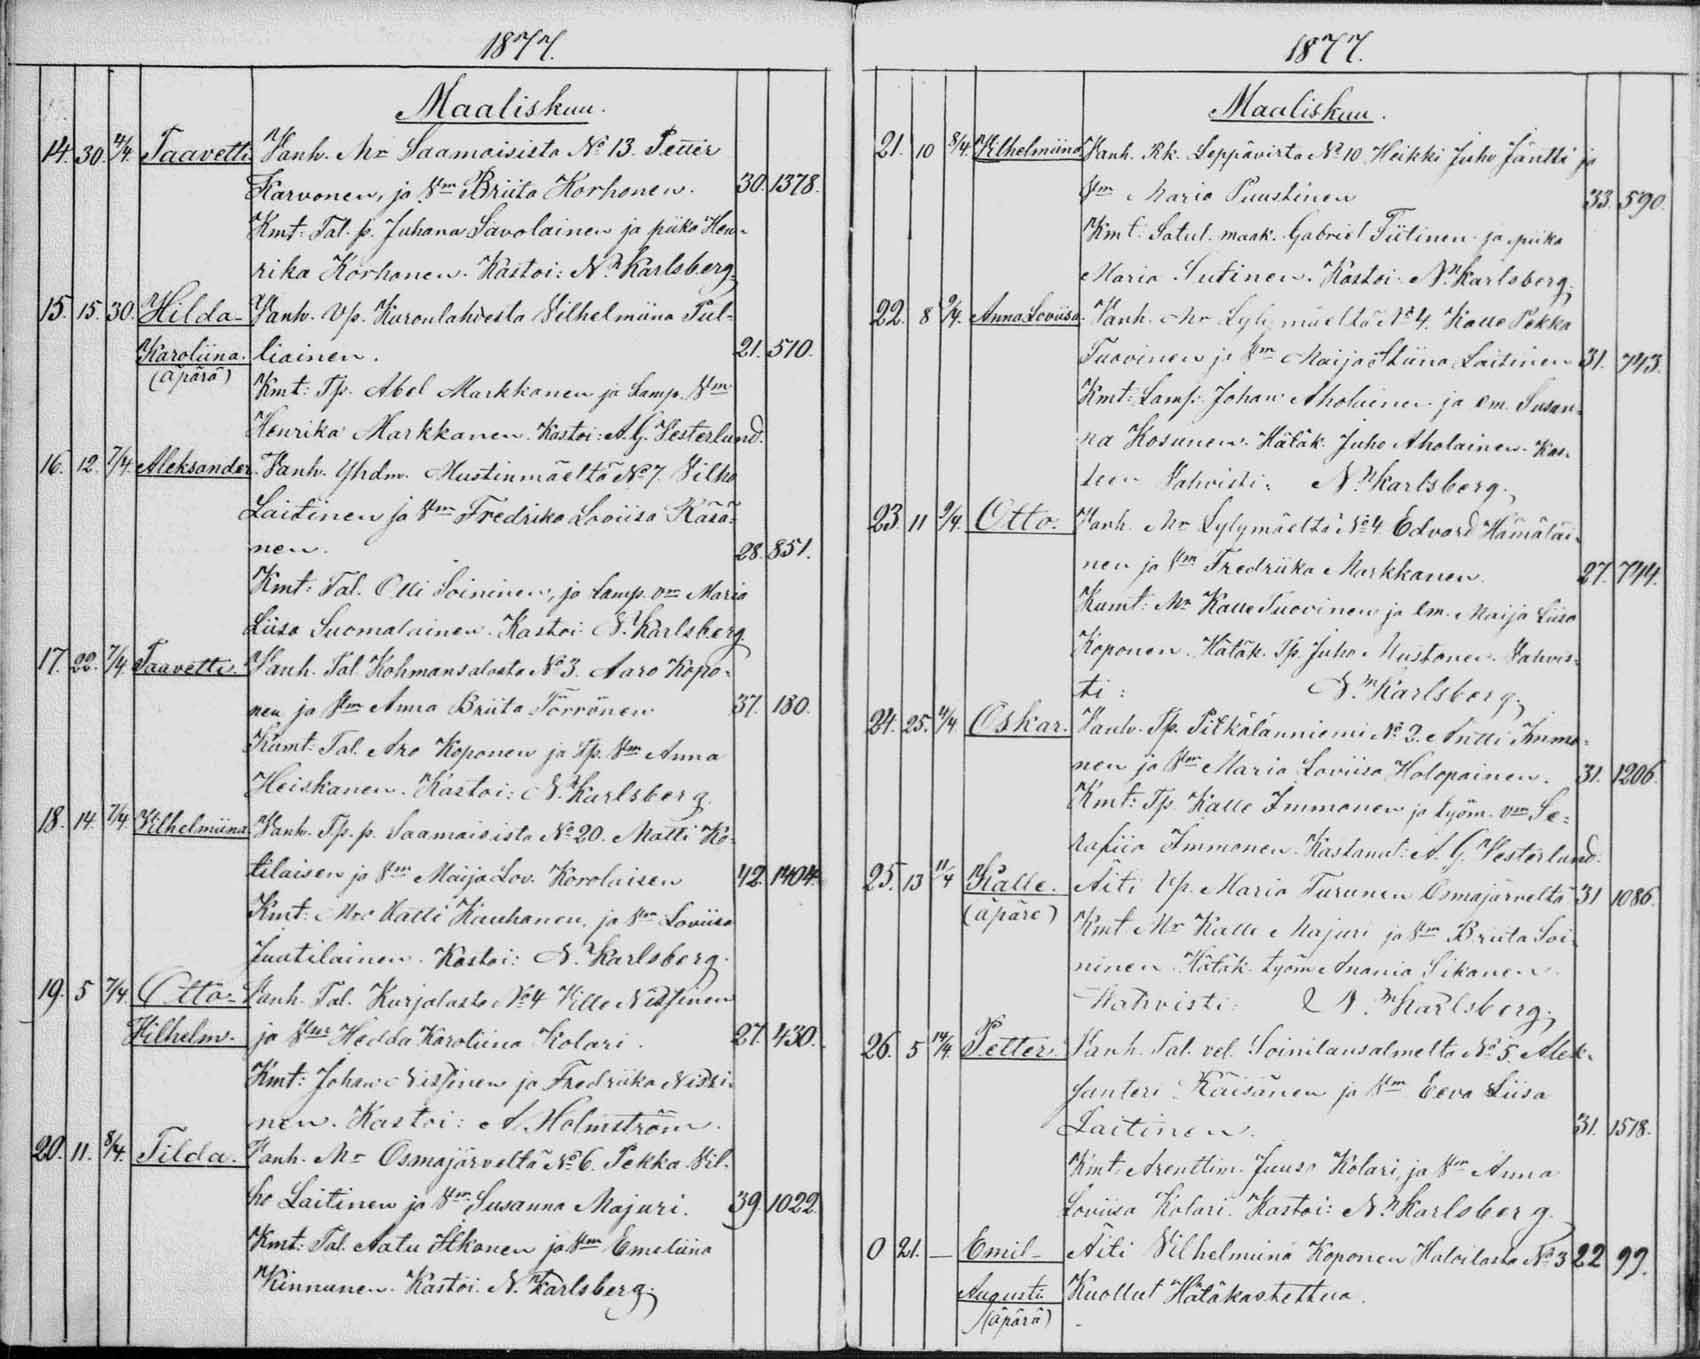 1877.
Maaliskuu.
14. 30. 4/4. Taavetti Vanh. Mr Saamaisista No 13. Petter
Karvonen, ja Vm Briita Korhonen. 30. 1378.
Kmt: Tal. p. Juhana Savolainen ja piika Hen-
rika Korhonen. Kastoi: N. Karlsberg.
15. 15. 30. Hilda- Vanh. Vp. Kuronlahdesta Vilhelmiina Pul-
Karoliina. liainen. 21. 510.
(äpärä) Kmt: Tp. Abel Markkanen ja Lamp. Vm
Henrika Markkanen. Kastoi: A. G. Vesterlund.
16. 12. 7/4. Aleksander. Vanh. Yhdm. Mustinmäeltä No 7. Vilho
Laitinen ja Vm Fredrika Loviisa Räsä-
nen. 28. 851.
Kmt: Tal. Olli Soininen, ja Lamp. vm Maria
Liisa Suomalainen. Kastoi N. Karlsberg
17. 22. 7/4. Taavetti. Vanh. Tal Kohmansalosta No 3. Aaro Kopo-
nen ja Vm Anna Briita Törrönen 37. 180.
Kumt: Tal. Aro Koponen ja Tp. Vm Anna
Heiskanen. Kastoi: N. Karlsberg.
18. 14. 7/4. Vilhelmiina Vanh. Tp. p. Saamaisista No 20. Matti Ko-
tilaisen ja Vm Maija Lov. Korolaisen 42. 1404.
Kmt: Mr Matti Kauhanen, ja Vm Loviisa
Juutilainen. Kastoi: N. Karlsberg.
19. 5 7/4. Otto- Vanh. Tal. Kurjalasta No 4 Ville Nissinen
Vilhelm. ja Vm Hedda Karoliina Kolari. 27. 430.
Kmt: Johan Nissinen ja Fredriika Nissi-
nen. Kastoi: A Holmström.
20. 11. 8/4. Tilda. Vanh. Mr Osmajärveltä No 6. Pekka Vil-
ho Laitinen ja Vm Susanna Majuri. 39. 1022.
Kmt: Tal. Aatu Itkonen ja Vm Emeliina
Kinnunen. Kastoi. N. Karlsberg.
1877.
Maaliskuu.
21. 10 8/4. Vilhelmiina Vanh. Rk. Leppävirta No 10. Heikki Juho Jäntti ja
Vm Maria Puustinen 33. 590.
Kmt: Satul. maak. Gabriel Tiitinen ja piika
Maria Sutinen. Kastoi N. Karlsberg,
22. 8 9/4. Anna Loviisa. Vanh. Mr Lylymäeltä No 4. Kalle Pekka
Tuovinen ja Vm Maija Stiina Laitinen 31. 743.
Kmt: Lamp. Johan Aholainen ja em. Susan-
na Kosunen. Hätäk. Juho Aholainen. Kas-
teen Vahvisti: N. Karlsberg.
23. 11 9/4. Otto. Vanh. Mr Lylymäeltä No 4 Edvard Hämäläi-
nen ja Vm Fredriika Markkanen. 27. 744.
Kumt: Mr Kalle Tuovinen ja em. Maija Liisa
Koponen. Hätäk. Tp. Juho Mustonen. Vahvis-
ti: N. Karlsberg.
24. 25. 11/4 Oskar. Vanh. Tp. Pitkälänniemi No 2. Antti Immo-
nen ja Vm Maria Loviisa Holopainen. 31. 1206.
Kmt: Tp. Kalle Immonen ja työm. vm Se-
rafiia Immonen. Kastanut: A. G. Vesterlund.
25. 13 11/4 Kalle. Äiti Vp. Maria Turunen Osmajärveltä 31 1086.
(äpäre) Kmt Mr Kalle Majuri ja Vm Briita Soi-
ninen Hätäk. työm Anania Sikanen.
Vahvisti: N. Karlsberg.
26. 5 14/4. Petter. Vanh. Tal. vel. Soinilansalmelta No 5. Alek-
santeri Räisänen ja Vm Eeva Liisa
Laitinen. 31. 1518.
Kmt: Arenttim. Juuso Kolari, ja Vm Anna
Loviisa Kolari. Kastoi: N. Karlsberg.
0 21. — Emil- Äiti Vilhelmiina Koponen Haloilasta No 3 22 99.
Augusti Kuollut Hätäkastettua.
(äpärä)